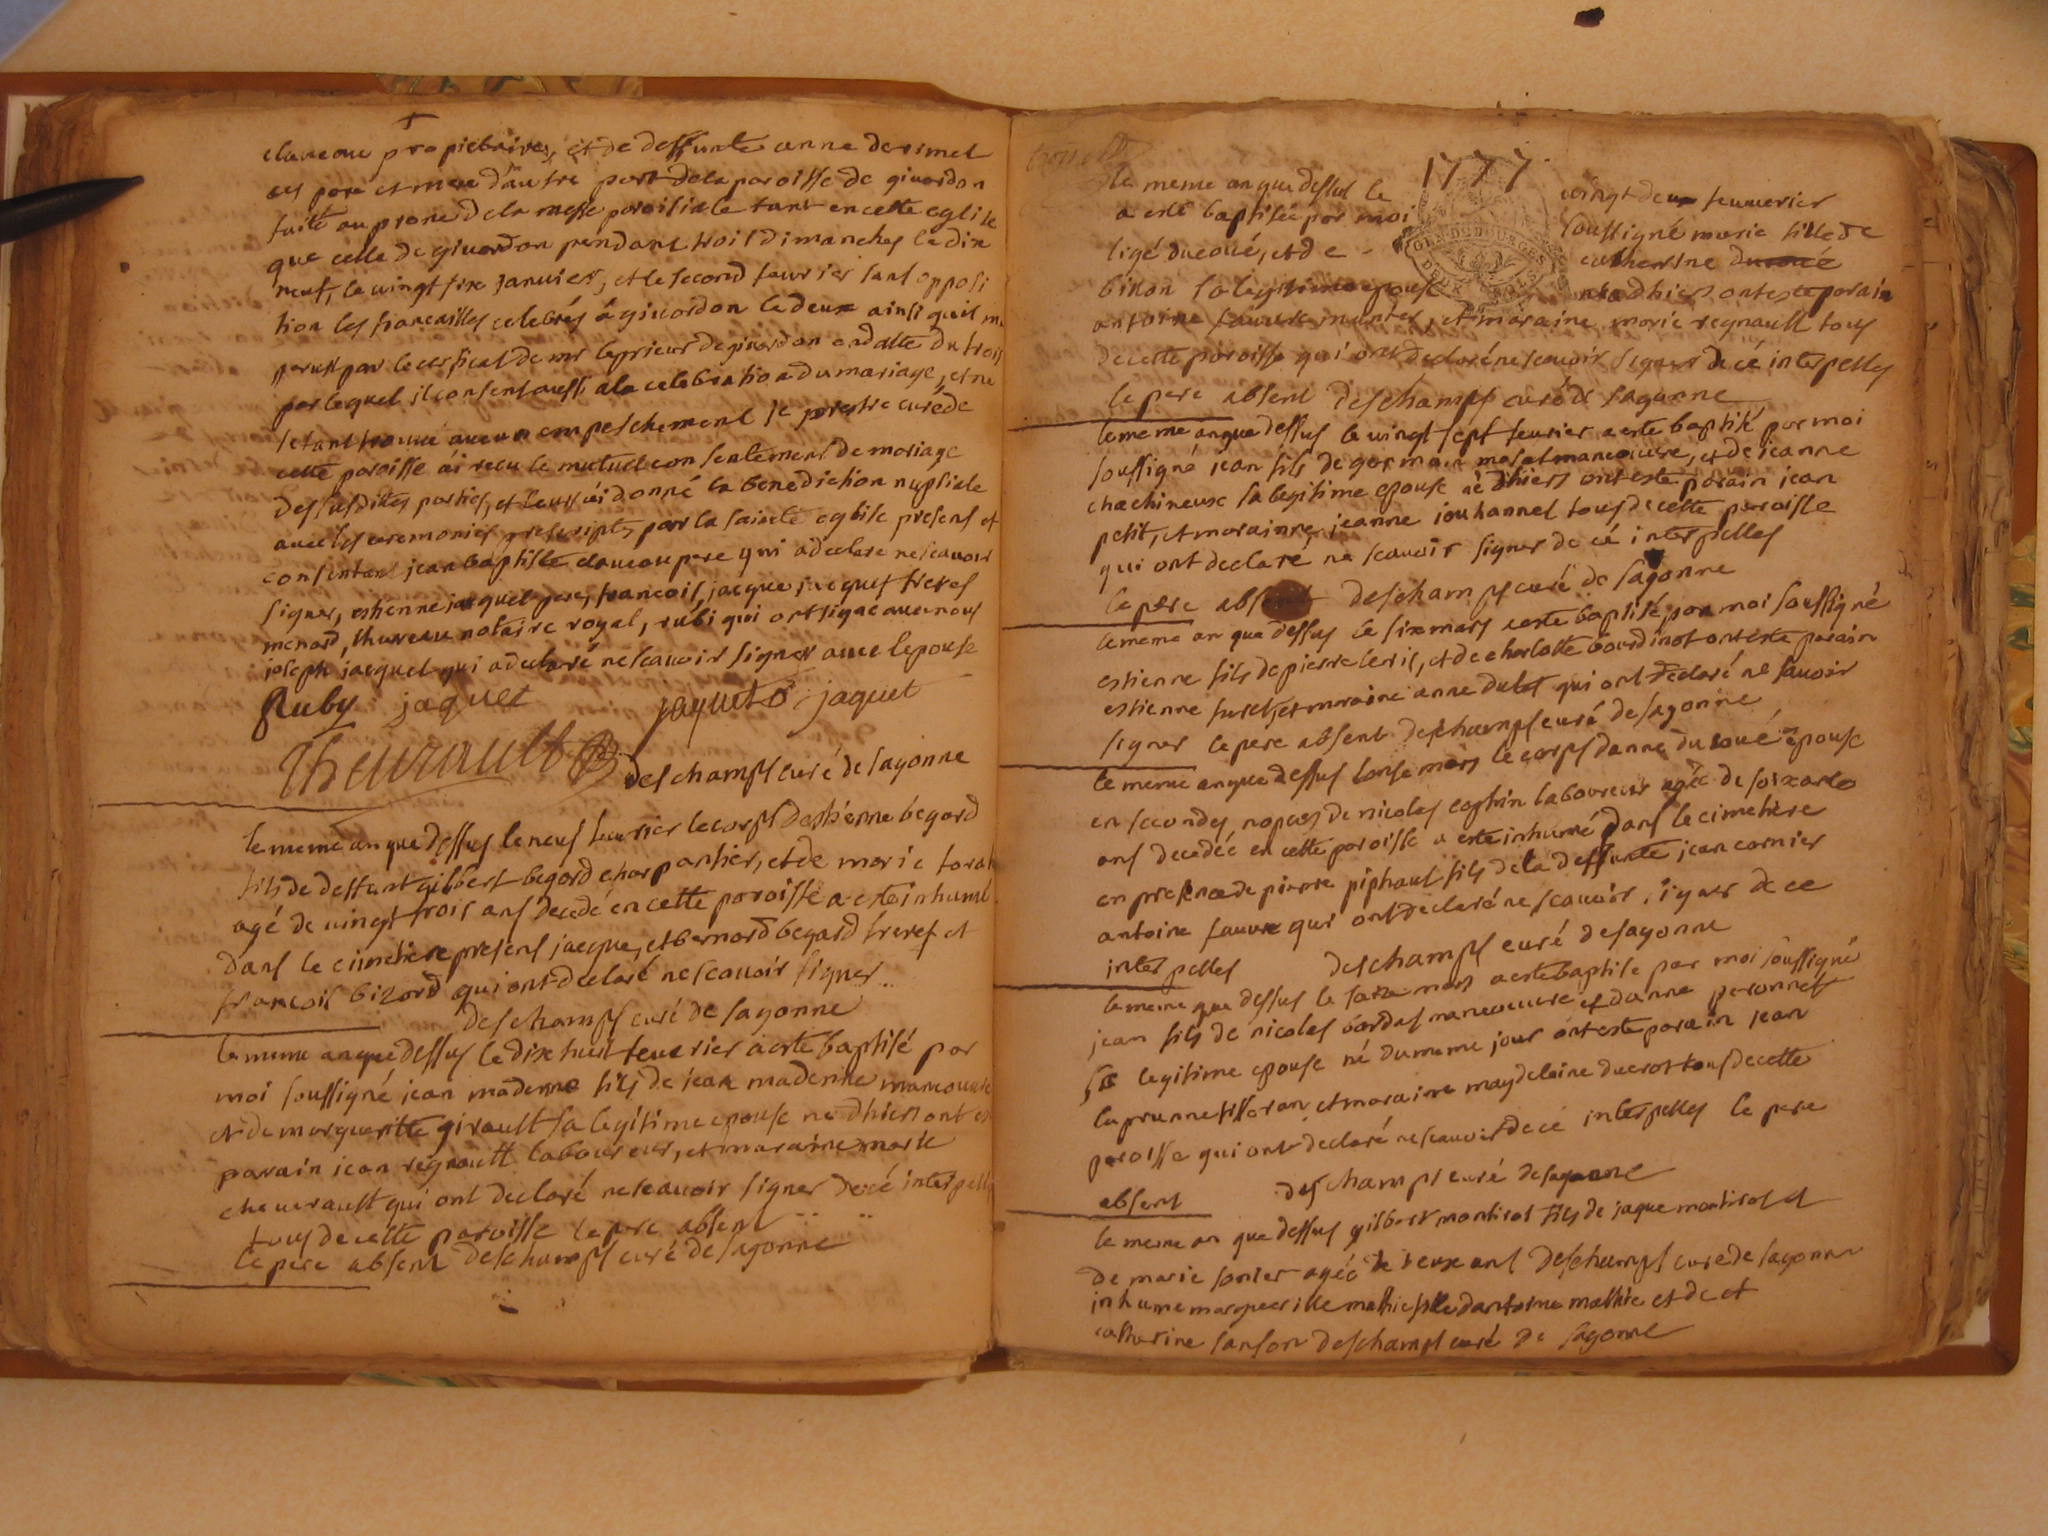 claucou propietaires, et de deffunte anne derimet
ses pere et mere d'autre part de la paroisse de givardon
faite au prone de la messe paroisiale tant en cette eglise
que celle de givardon pendant trois dimanches le dix
neuf, le vingt six janvier, et le second feuvrier sans opposi
tion les fiancailles celebrés á givardon le deux ainsi quil m
parust par le certficat de mr leprieur de givardon en datte du trois
par lequel il consent aussi a la celebration du mariage, et ne
setant trouvé aucun empeschement je prestre curé de
cette paroisse ái recu le mutuel consentement de mariage
des susdittes parties, et leurs ái donné la benediction nuptiale
avec les ceremonies prescripts par la sainte eglise presens et
consentans jean baptiste claucou pere qui a declare ne scavoir
signer, estienne jacquet pere, francois, jacque jacquet freres
menard, thureau notaire royal, rubi qui ont signé avec nous
joseph jacquet qui a declaré ne scavoir signer avec lepouse
Ruby jaquet jaquet jaquet
Theurault deschamps curé de sagonne
le meme an que dessus le neuf feuvrier le corps destienne begard
fils de deffunt gilbert begard charpantier, et de marie
agé de vingt trois ans decedé en cette paroisse a este inhumé
dans le cimetiere presens jacque, et bernard begard freres et
francois bizard qui ont declaré ne scavoir signer
deschamps curé de sagonne
le meme an que dessus le dix huit feuvrier a este baptisé par
moi soussigné jean madenne fils de jean madenne manoeuvre
et de margueritte girault sa legitime epouse ne dhier ont es
parain jean regnault laboureur, et maraine marie
cheverault qui ont declaré ne scavoir signer de cé interpellé
tous de cette paroisse le pere absent
le pere absent deschamps curé de sagonne
1777
le meme an que dessus le vingt deux feuvrier
a esté baptisée par moi soussigné marie fille de
ligé ducoué, et de catherine
binon sa legitime epouse née dhier ont este parain
antoine fauvre, et maraine marie regnault tous
de cette paroisse qui ont declaré ne scavoir signer de cé interpelles
le pere absent deschamps curé de sagonne
le meme an que dessus le vingt sept feuvrier a este baptisé par moi
soussigné jean fils de germain manoeuvre, et de jeanne
chachineux sa legitime epouse né dhiers ont este parain jean
petit, et marainne jeanne jouhannet tous de cette paroisse
qui ont declaré ne scavoir signer de cé interpelles
le pere absent deschamps curé de sagonne
le meme an que dessus le six mars a este baptisé par moi soussigné
estienne fils de pierre leris, et de charlotte bourdinot ont este parain
estienne furet, et maraine anne dubet qui ont declaré ne savoir
signer le pere absent deschamps curé de sagonne
le meme an que dessus lonse mars le corps danne ducoué epouse
en secondes nopces de nicolas cophin laboureur agée de soixante
ans decedée en cette paroisse a este inhumé dans le cimetiere
en presence de pierre piphaut fils de la deffunte jean cornier
antoine fauvre qui ont declaré ne scavoir signer de ce
interpelles deschamps curé de sagonne
le meme que dessus le saize mars a este baptise par moi soussigné
jean fils de nicolas bardas manoeuvre et danne peronnet
sa legitime epouse né du meme jour ont este parain jean
laprunne tisseran, et maraine magdelaine ducrot tous de cette
paroisse qui ont declaré ne scavoir de cé interpelles le pere
absent deschamps curé de sagonne
le meme an que dessus gilbert montirot fils de jaque montirot et
de marie agée de deux ans deschamps curé de sagonne
inhume margueritte mathie fille dantoine mathie et de et
catherine sanson deschamps curé de sagonne